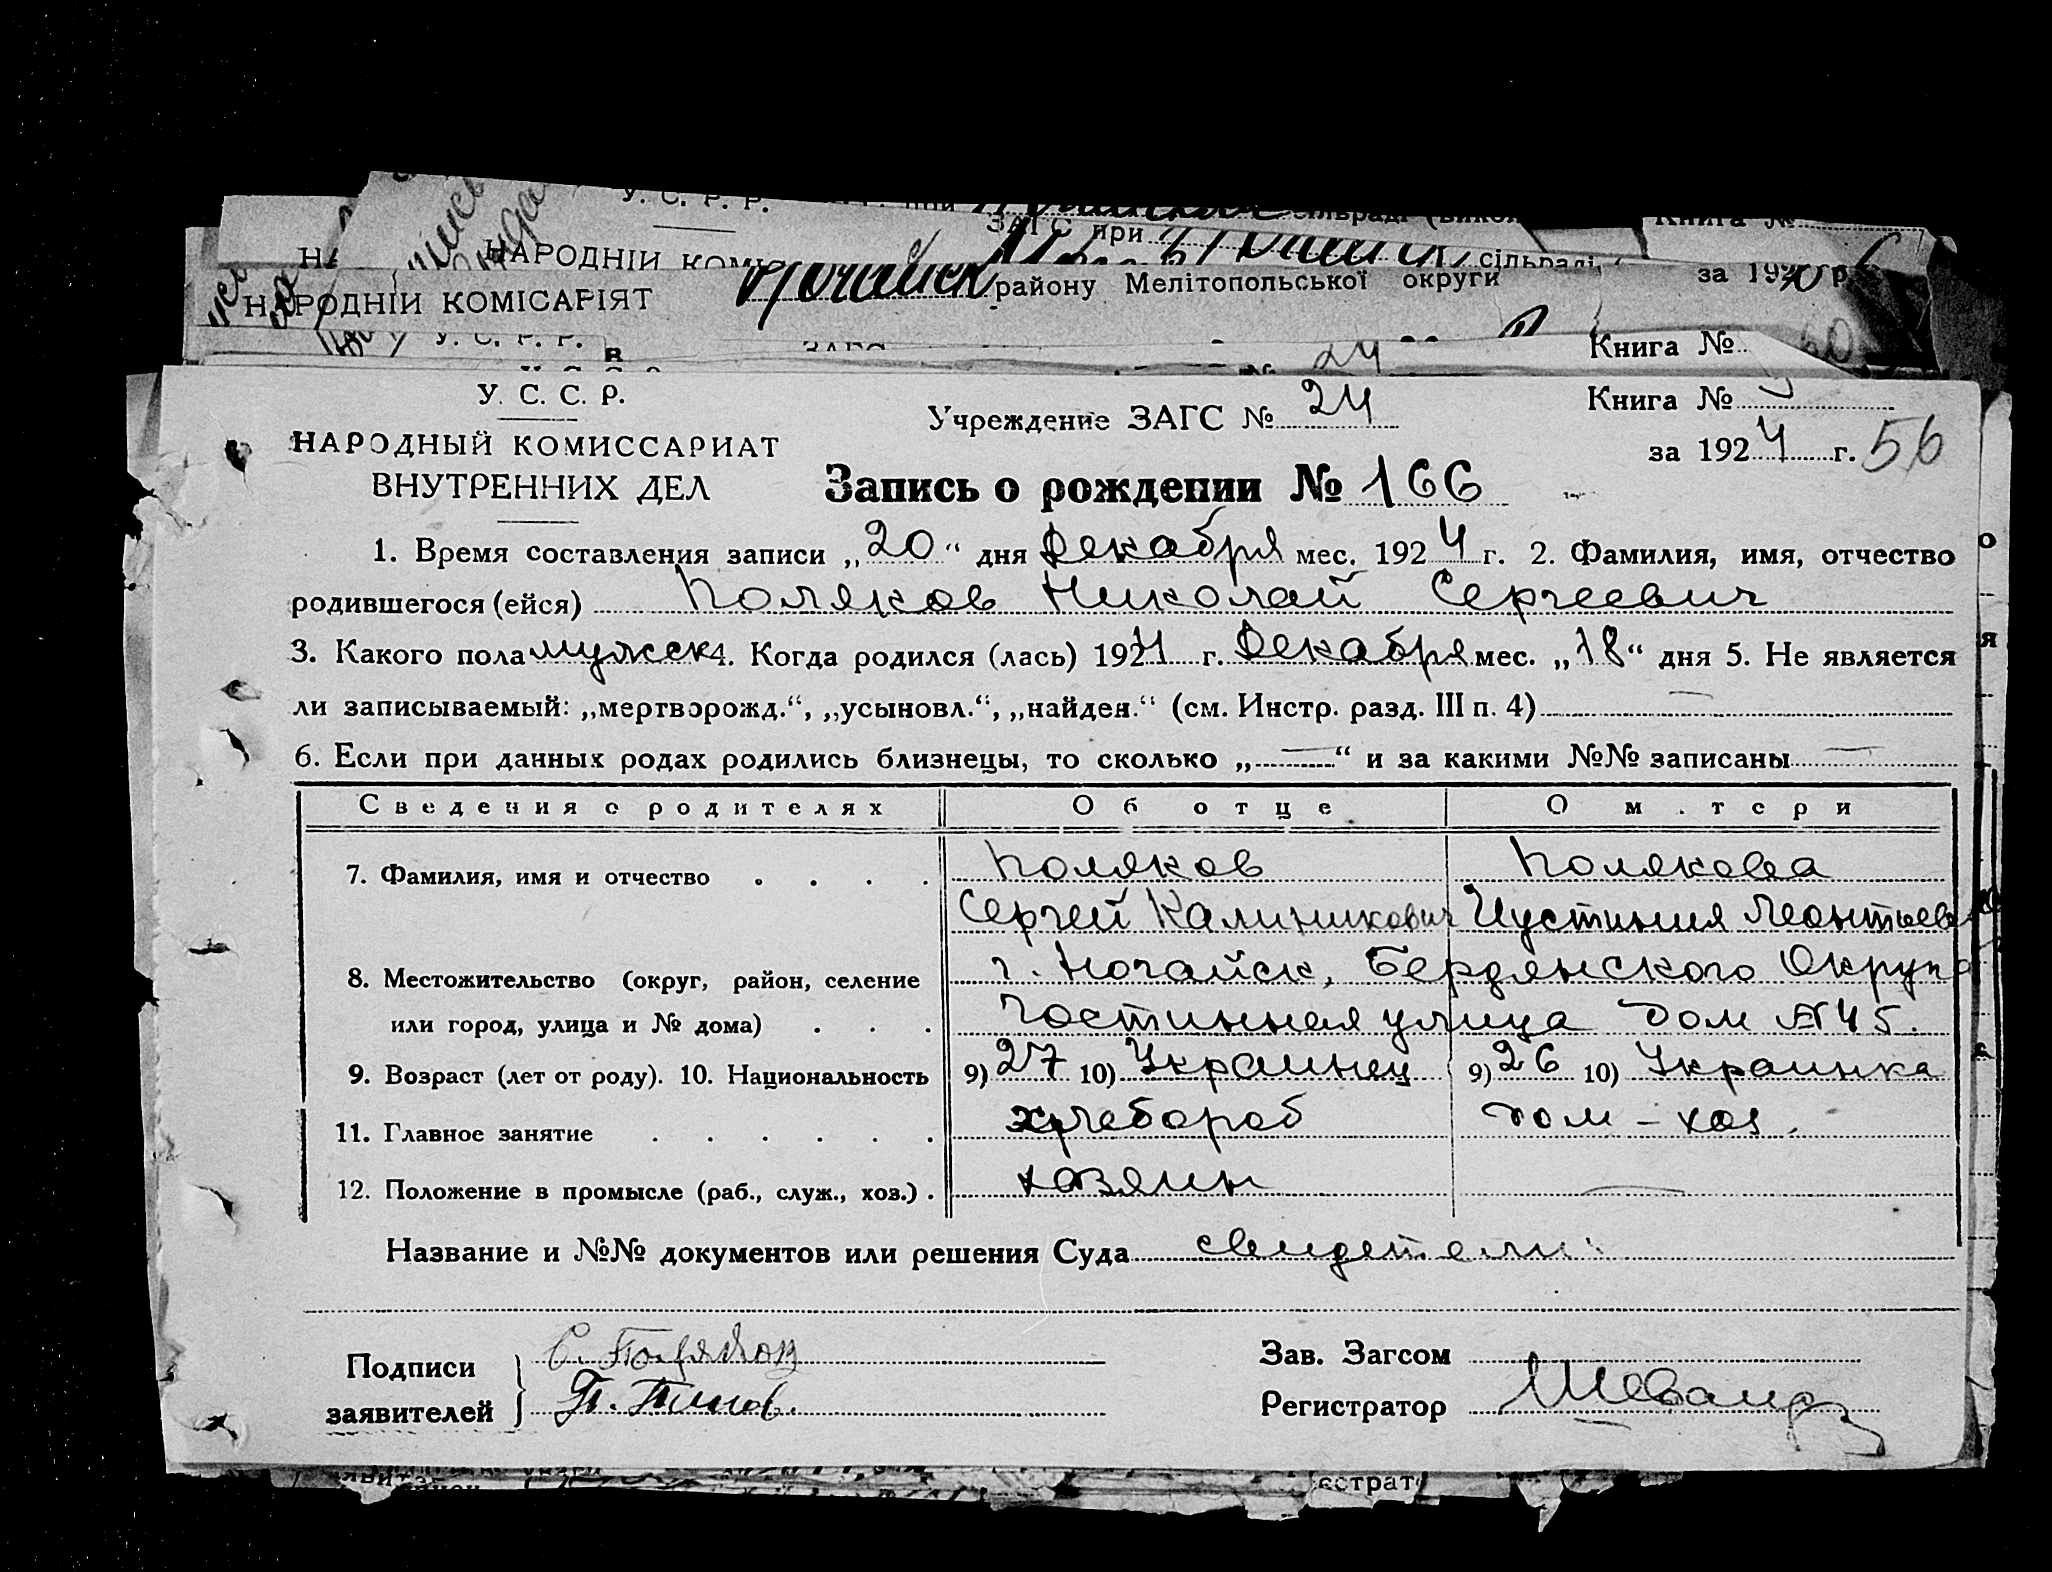 У. С. Р. Р.
ЗАГС при сільраді
НАРОДНІЙ
НАРОДНІЙ КОМІСАРІЯТ
району Мелітопольської округи
за 192 р.
У. С. Р. Р.
Книга №
24
У. С. С. Р.
НАРОДНЫЙ КОМИССАРИАТ
ВНУТРЕННИХ ДЕЛ
Учреждение ЗАГС № 24
Книга №
за 1924 г. 56
Запись о рождении № 166
1. Время составления записи „20“ дня Декабря мес. 1924 г. 2. Фамилия, имя, отчество
родившегося (ейся) Поляков Николай Сергеевич
3. Какого пола мужск 4. Когда родился (лась) 1924 г. Декабря мес. „18“ дня 5. Не является
ли записываемый: „мертворожд.“, „усыновл.“, „найден.“ (см. Инстр. разд. III п. 4) —
6. Если при данных родах родились близнецы, то сколько „—“ и за какими №№ записаны —
Сведения о родителях Об отце О м.тери
7. Фамилия, имя и отчество . . . . Поляков Полякова
Сергей Калиникович Иустиния Леонтьев
8. Местожительство (округ, район, селение г. Ногайск, Бердянского Округа
или город, улица и № дома) . . . Гостинная улица дом №45.
9. Возраст (лет от роду). 10. Национальность 9) 27 10) Украинец 9) 26 10) Украинка
11. Главное занятие . . . . . . хлебороб дом-хоз.
12. Положение в промысле (раб., служ., хоз.) . хозяин —
Название и №№ документов или решения Суда свидетели:
Подписи заявителей
С. Поляков
Зав. Загсом
Регистратор